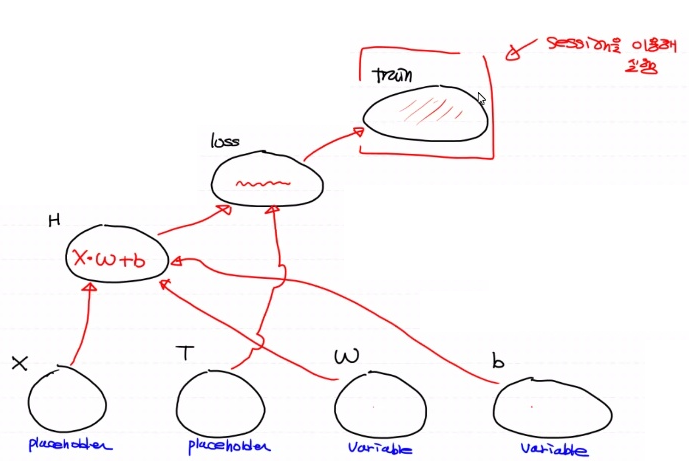 session을 이용해
실행
train
loss
H
X·W+b
X
T
W
b
placeholder
placeholder
Variable
Variable